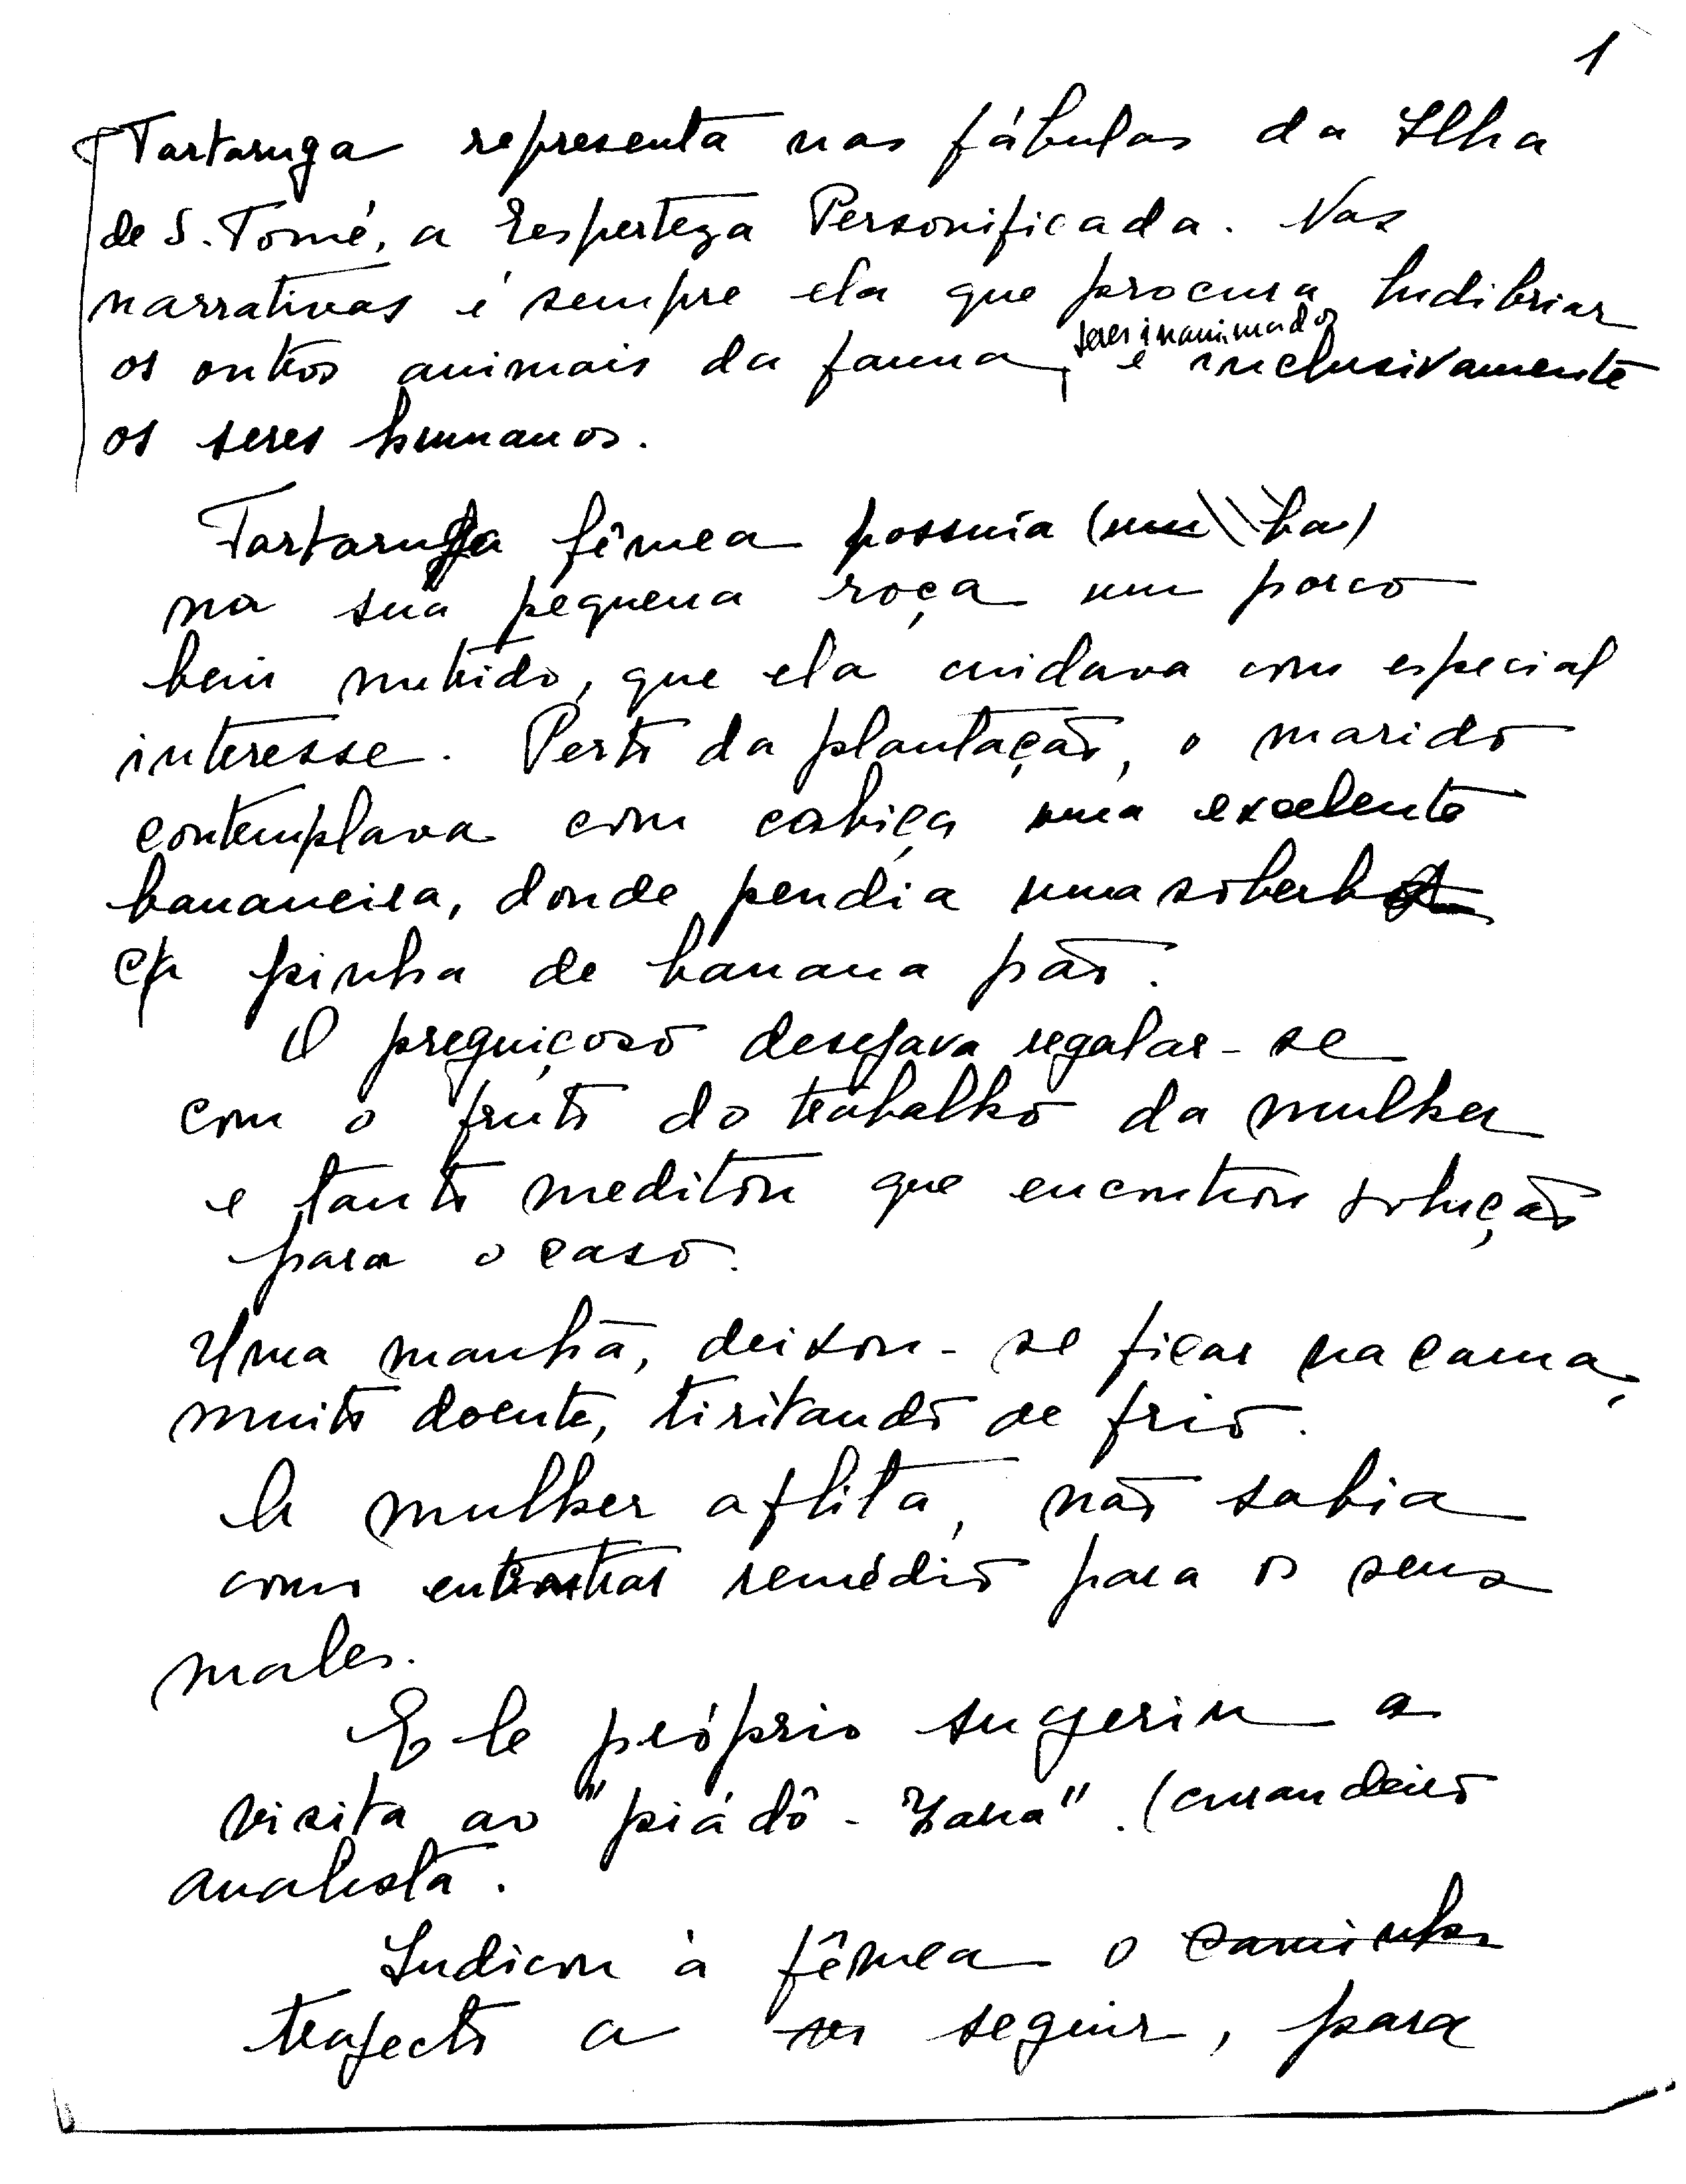 1
Tartaruga representa nas fábulas da Ilha
de S. Tomé, a Esperteza Personificada. Nas
narrativas é sempre ela que procura ludibriar
seres inanimados
os outros animais da fauna, e inclusivamente
os seres humanos.
Tartaruga fêmea possuía (um ha)
na sua pequena roça um porco
bem nutrido, que ela cuidava com especial
interesse. Perto da plantação, o marido
contemplava com cobiça uma excelente
bananeira, donde pendia uma soberba
pinha de banana pão.
O preguiçoso desejava regalar-se
com o fruto do trabalho da mulher
e tanto meditou que encontrou solução
para o caso.
Uma manhã, deixou-se ficar na cama,
muito doente, tiritando de frio.
A mulher aflita, não sabia
como remédio para os seus
males.
Ele próprio sugeriu a
visita ao "piádô-Zaua". (curandeiro
analista.
Indicou à fêmea o caminho
trajecto a seguir, para